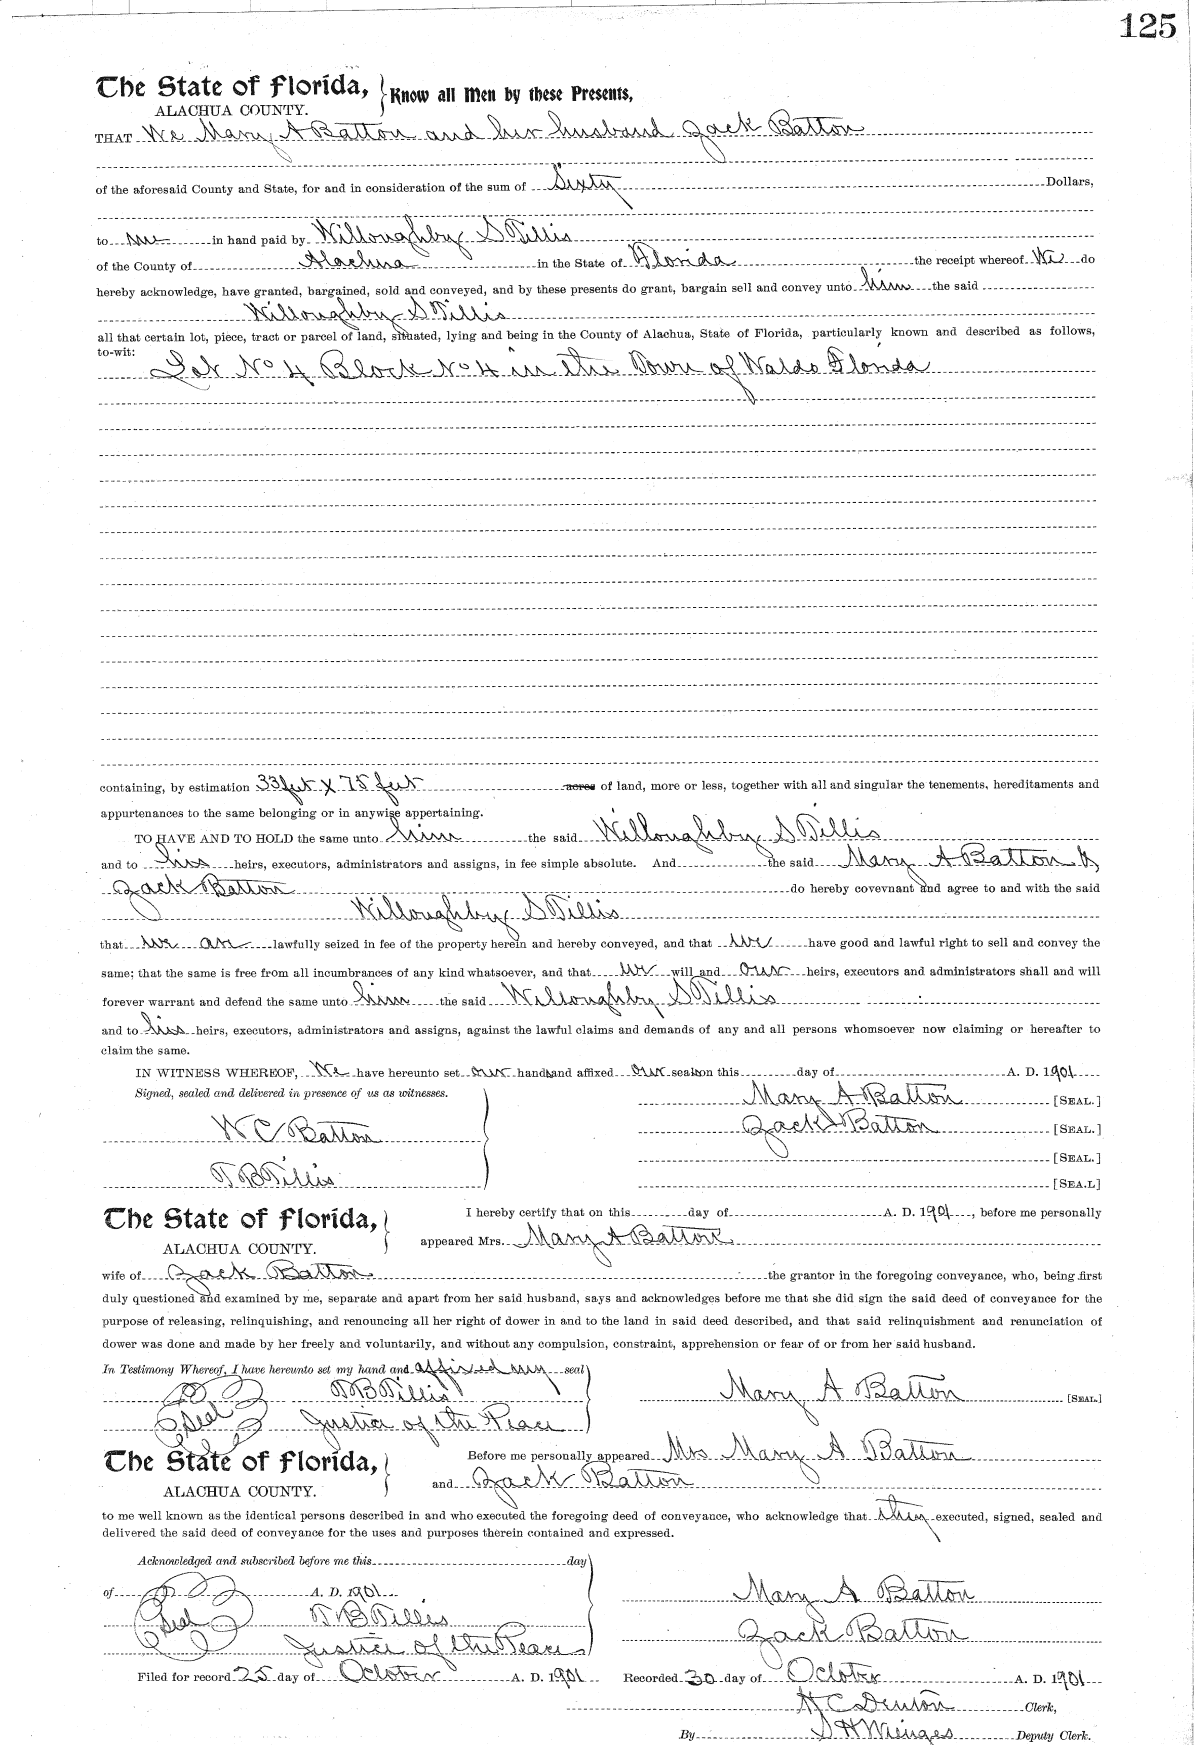 125
The State of Florida, Know all Men by these Presents,
ALACHUA COUNTY.
THAT We Mary A Batton and her husband Zack Batton
of the aforesaid County and State, for and in consideration of the sum of Sixty Dollars,
to me in hand paid by Willoughby S Tillis
of the County of Alachua in the State of Florida the receipt whereof We do
hereby acknowledge, have granted, bargained, sold and conveyed, and by these presents do grant, bargain sell and convey unto him the said
Willoughby S Tillis
all that certain lot, piece, tract or parcel of land, situated, lying and being in the County of Alachua, State of Florida, particularly known and described as follows,
to-wit:
Lot No 4 Block No 4 in the Town of Waldo Florida
containing, by estimation 33 feet X 75 feet acres of land, more or less, together with all and singular the tenements, hereditaments and
appurtenances to the same belonging or in anywise appertaining.
TO HAVE AND TO HOLD the same unto him the said Willoughby S Tillis
and to his heirs, executors, administrators and assigns, in fee simple absolute. And the said Mary A Batton &
Zack Batton do hereby covevnant and agree to and with the said
Willoughby S Tillis
that we are lawfully seized in fee of the property herein and hereby conveyed, and that we have good and lawful right to sell and convey the
same; that the same is free from all incumbrances of any kind whatsoever, and that we will and our heirs, executors and administrators shall and will
forever warrant and defend the same unto him the said Willoughby S Tillis
and to his heirs, executors, administrators and assigns, against the lawful claims and demands of any and all persons whomsoever now claiming or hereafter to
claim the same.
IN WITNESS WHEREOF, We have hereunto set our hands and affixed our seals on this day of A. D. 1901
Signed, sealed and delivered in presence of us as witnesses.
Mary A Batton [SEAL.]
W C Batton
Zack Batton [SEAL.]
[SEAL.]
T B Tillis
[SEA.L]
The State of Florida,
ALACHUA COUNTY.
I hereby certify that on this day of A. D. 1901, before me personally
appeared Mrs. Mary A Batton
wife of Zack Batton the grantor in the foregoing conveyance, who, being first
duly questioned and examined by me, separate and apart from her said husband, says and acknowledges before me that she did sign the said deed of conveyance for the
purpose of releasing, relinquishing, and renouncing all her right of dower in and to the land in said deed described, and that said relinquishment and renunciation of
dower was done and made by her freely and voluntarily, and without any compulsion, constraint, apprehension or fear of or from her said husband.
In Testimony Whereof, I have hereunto set my hand and affixed my seal
T B Tillis
Mary A Batton [SEAL]
Seal Justice of the Peace
The State of Florida,
ALACHUA COUNTY.
Before me personally appeared Mrs Mary A Batton
and Zack Batton
to me well known as the identical persons described in and who executed the foregoing deed of conveyance, who acknowledge that they executed, signed, sealed and
delivered the said deed of conveyance for the uses and purposes therein contained and expressed.
Acknowledged and subscribed before me this day
of A. D. 1901
Mary A Batton
Seal T B Tillis
Zack Batton
Justice of the Peace
Filed for record 25 day of October A. D. 1901 Recorded 30 day of October A. D. 1901
H C Denton Clerk,
By S H Wienges Deputy Clerk.